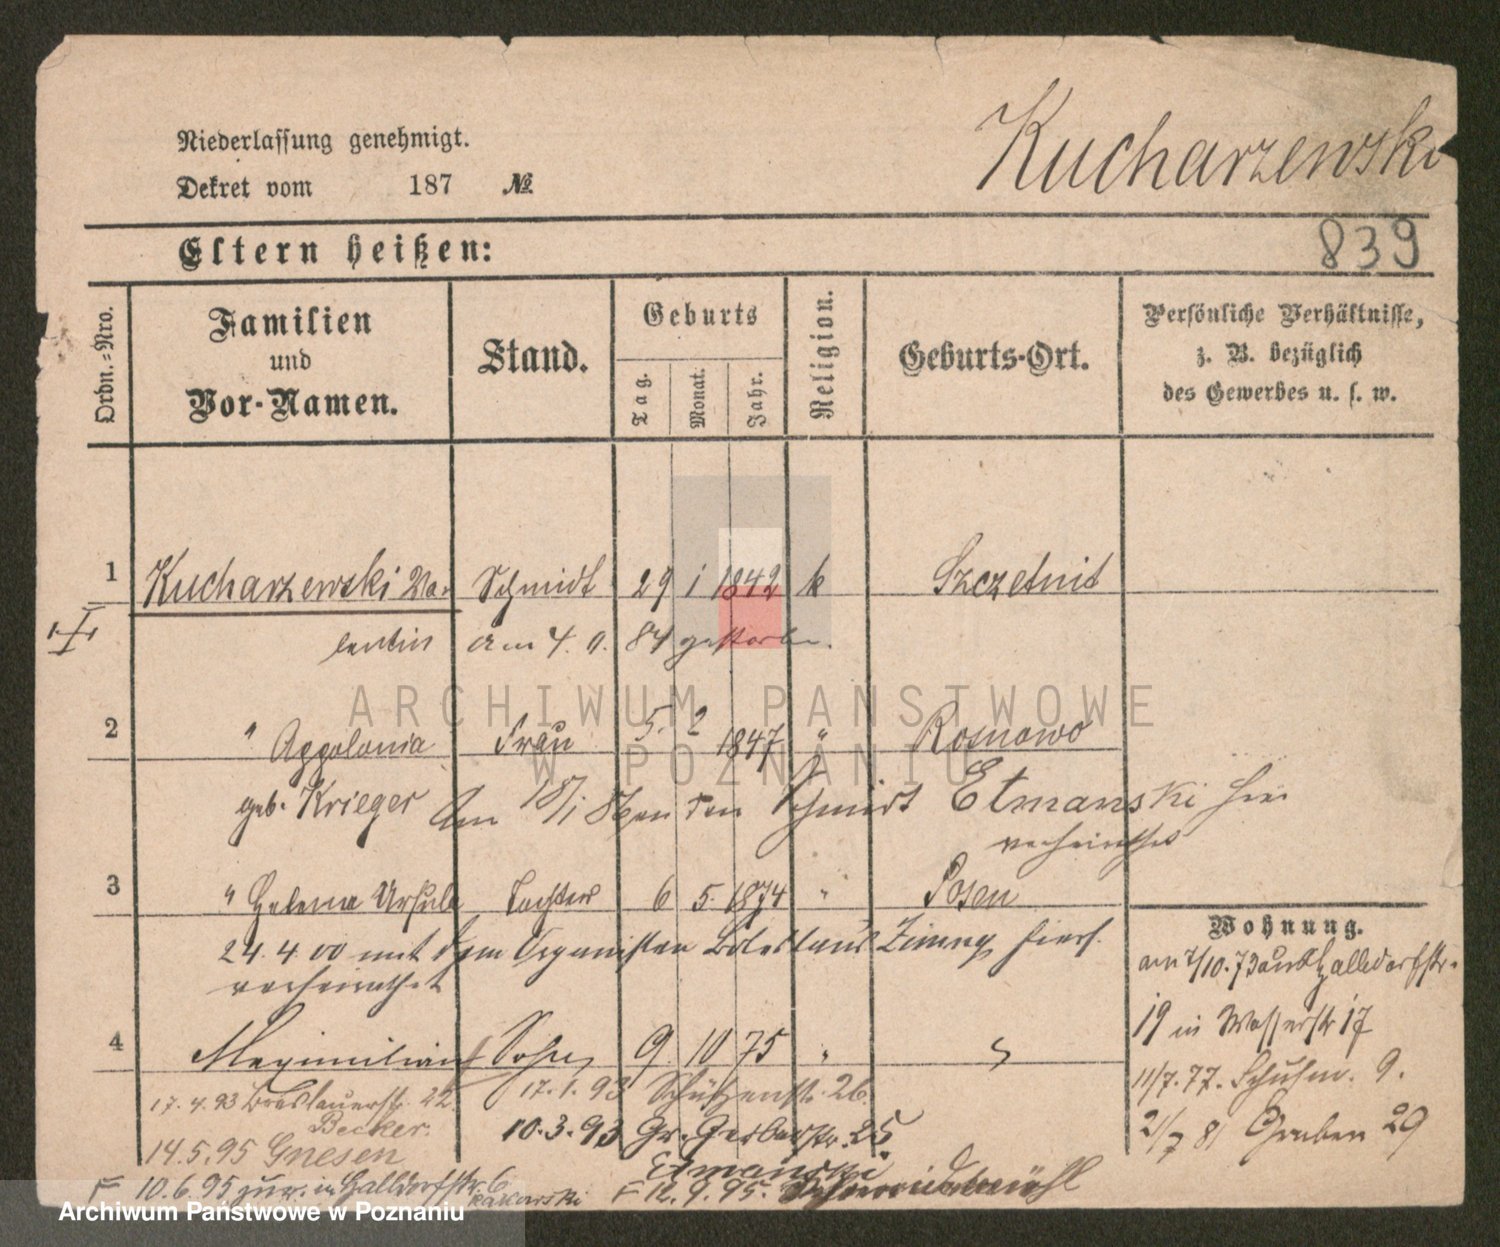 Kucharzewski
Niederlassung genehmigt.
Dekret vom 187 №
839
Eltern heißen:
Ordn.-Nro.
Familien
und
Vor-Namen.
Stand.
Geburts
Tag.
Monat.
Jahr.
Religion.
Geburts-Ort.
Persönliche Verhältnisse,
z. B. bezüglich
des Gewerbes u. s. w.
1 Kucharzewski Va- Schmidt 29 1 1842 k Szczetnit
lentin am 4. 9. 84 gestorben.
ARCHIWUM PAŃSTWOWE
W POZNANIU
2 " Appolonia Frau 5. 2 1847 " Rosnowo
geb. Krieger Am 18/1 86 an den Schmidt Etmanski hier
verheirathet
3 " Helena Ursula Tochter 6 5. 1874 " Posen
24. 4 00 mit dem Organisten Boleslaus hiers.
verheirathet
4 Maximilian Sohn 9 10 75 "
Wohnung.
am 7/10. 73 aus Halldorfstr.
19 in Wasserstr 17
11/7. 77. Schuhm. 9.
2/7 81 Graben 29
17. 4. 93 Breslauerstr. 22.
Becker.
17. 1. 93 Schützenstr. 26.
10. 3. 93 Gr. Gerberstr. 25
Etmanski
14. 5. 95 Gnesen
F 10. 6. 95 zur. in Halldorfstr. 6
Rakowski
F 12. 9. 95. Schneidemühl
Archiwum Państwowe w Poznaniu